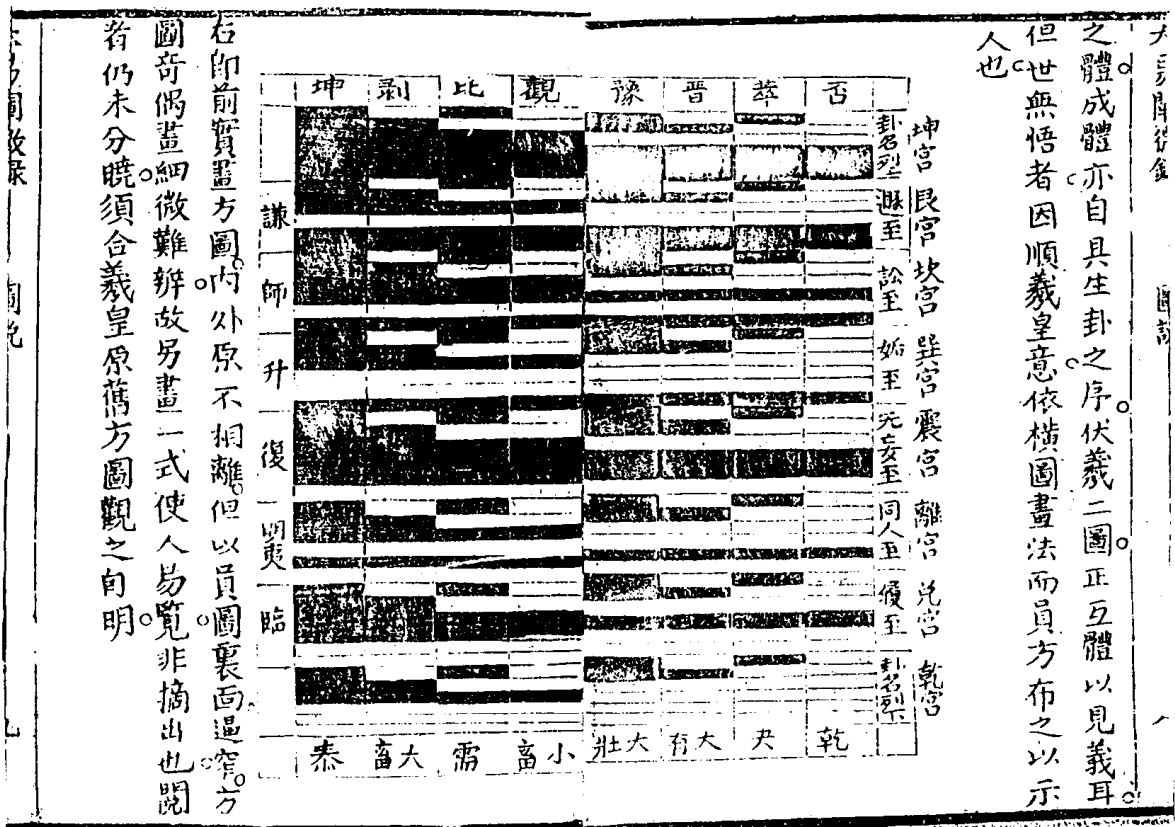 圖說
之體成體亦自具生卦之序伏羲二圖正互體以見義耳
但世無悟者因順羲皇意依橫圖畫法而員方布之以示
人也
坤宮 艮宮 坎宮 巽宮 震宮 離宮 兌宮 乾宮
卦名列上 遯至 訟至 姤至 无妄至 同人至 履至 卦名列下
否 萃 晋 豫 觀 比 剥 坤
謙 師 升 復 明夷 臨
乾 夬 大有 大壯 小畜 需 大畜 泰
右即前實畫方圖內外原不相離但以員圖裏面逼窄方
圖奇偶畫細微難辨故另畫一式使人易覽非摘出也閱
者仍未分曉須合羲皇原舊方圖觀之自明
圖說